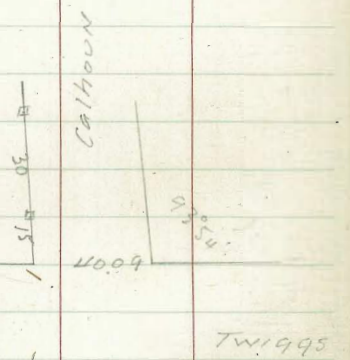 Calhoun
30
15
40.09
Twiggs